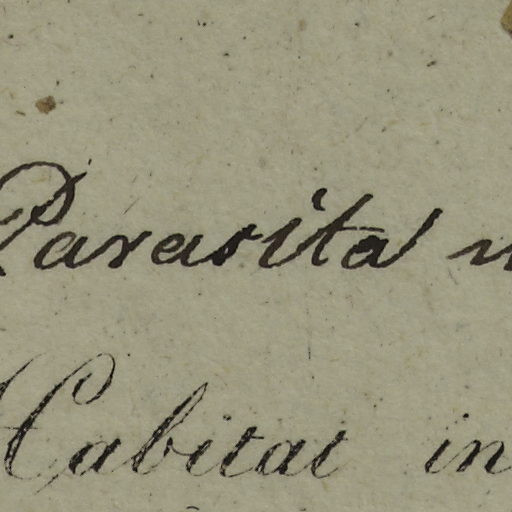 Parasita
Habitat in